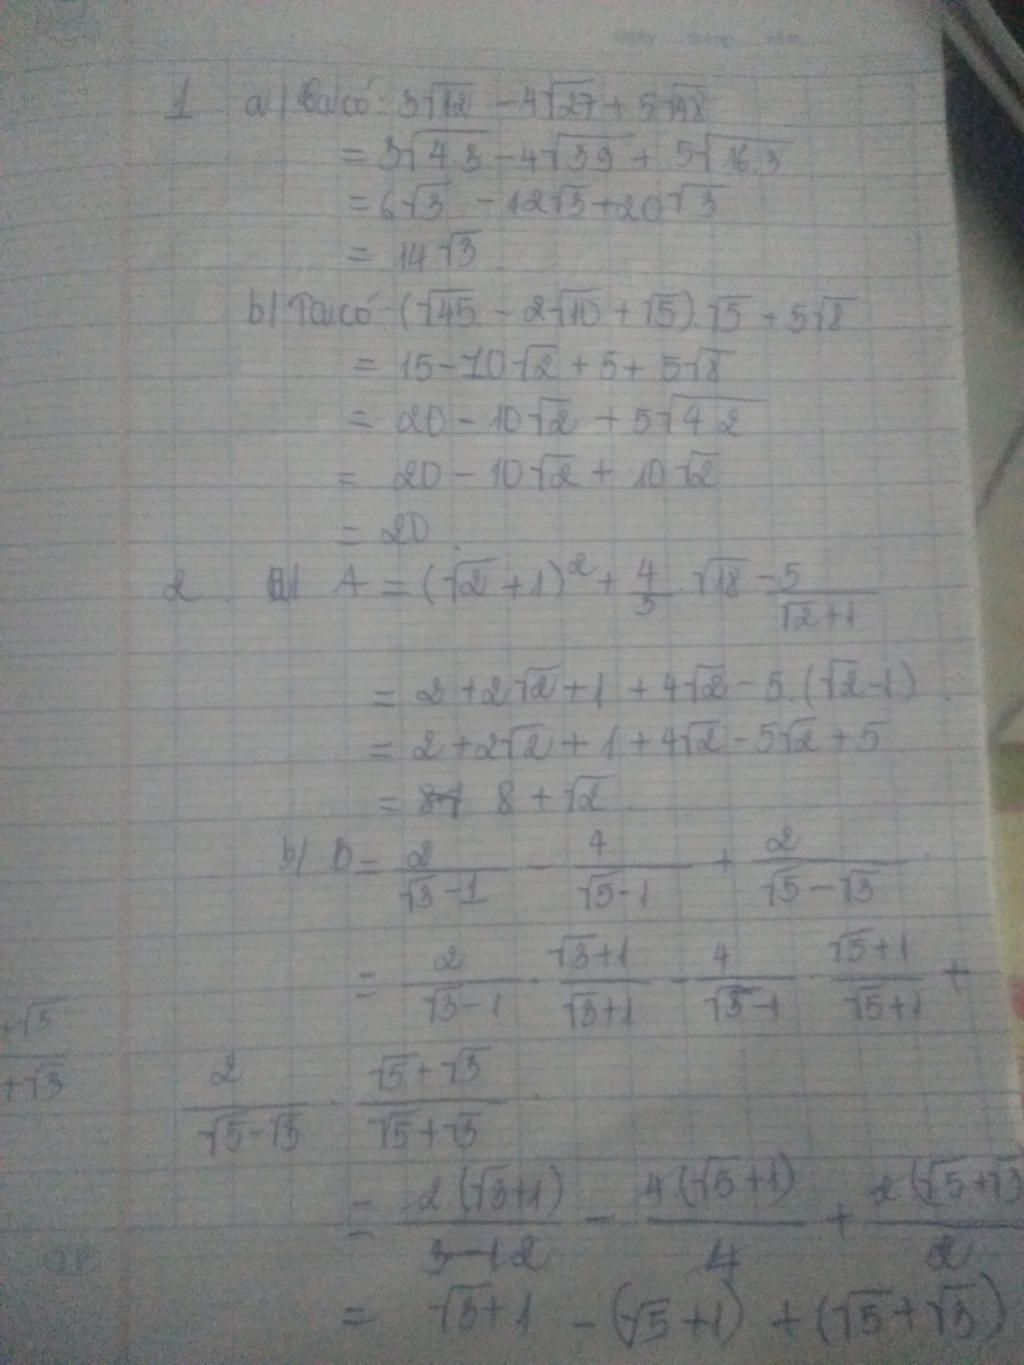 Ngày tháng năm
1 a/ Ta có: 3√12 - 4√27 + 5√48
= 3√4.3 - 4√3.9 + 5√16.3
= 6√3 - 12√3 + 20√3
= 14√3.
b/ Ta có: (√45 - 2√10 + √5).√5 + 5√8
= 15 - 10√2 + 5 + 5√8
= 20 - 10√2 + 5√4.2
= 20 - 10√2 + 10√2
= 20.
2. a/ A = (√2 + 1)² + 4/3 . √18 - 5/(√2+1)
= 2 + 2√2 + 1 + 4√2 - 5.(√2-1).
= 2 + 2√2 + 1 + 4√2 - 5√2 + 5
= 8 + √2.
b/ B = 2/(√3-1) - 4/(√5-1) + 2/(√5-√3).
= 2/(√3-1) . (√3+1)/(√3+1) - 4/(√5-1) . (√5+1)/(√5+1) +
2/(√5-√3) . (√5+√3)/(√5+√3).
= 2(√3+1)/2 - 4(√5+1)/4 + 2(√5+√3)/2
= √3+1 - (√5+1) + (√5+√3)
+√5
+√3